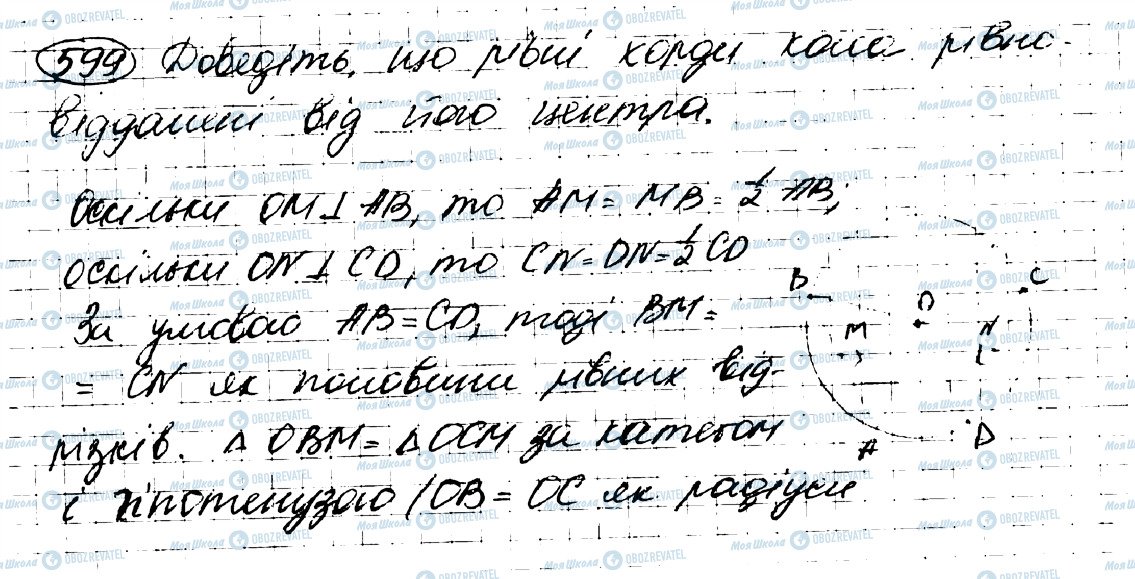 599 Доведіть, що рівні хорди кола рівно-
віддалені від його центра.
Оскільки OM⊥AB, то AM = MB = ½ AB;
оскільки ON⊥CD, то CN = DN = ½ CD
За умовою AB = CD, тоді BM =
= CN як половини рівних від-
різків. △ OBM = △ OCM за катетом
і гіпотенузою (OB = OC як радіуси
B
C
O
M
N
A
D